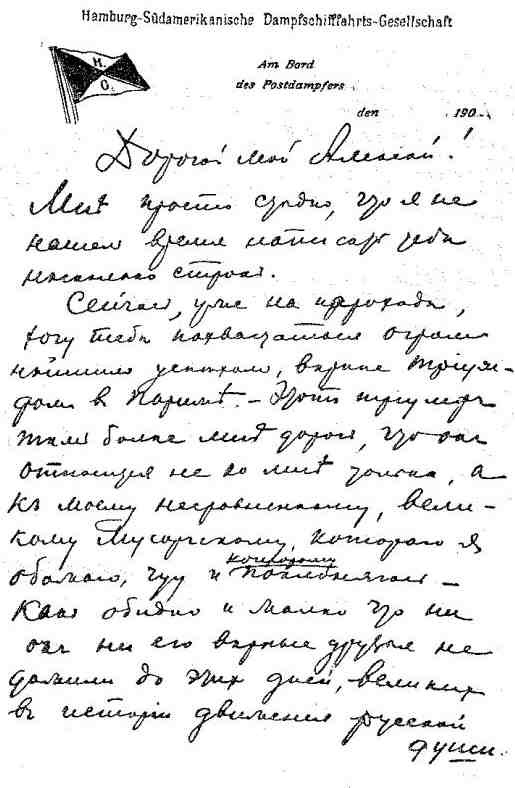 Hamburg-Südamerikanische Dampfschifffahrts-Gesellschaft
H.
G.
Am Bord
des Postdampfers
den 190
Дорогой мой Алексей!
Мнѣ просто стыдно, что я не
нашел время написать тебе
несколько строк.
Сейчас, уже на пароходе,
хочу тебе похвастаться огром
нейшим успехом, вернее триум-
фом в Парижѣ. — Этот триумф
тем более мнѣ дорог, что он
относится не ко мнѣ только, а
къ моему несравненному, вели-
кому Мусоргскому, которого я
обожаю, чту и которому поклоняюсь —
Как обидно и жалко что ни
он ни его верные друзья не
дожили до этих дней, великих
въ истории движения русской
души.